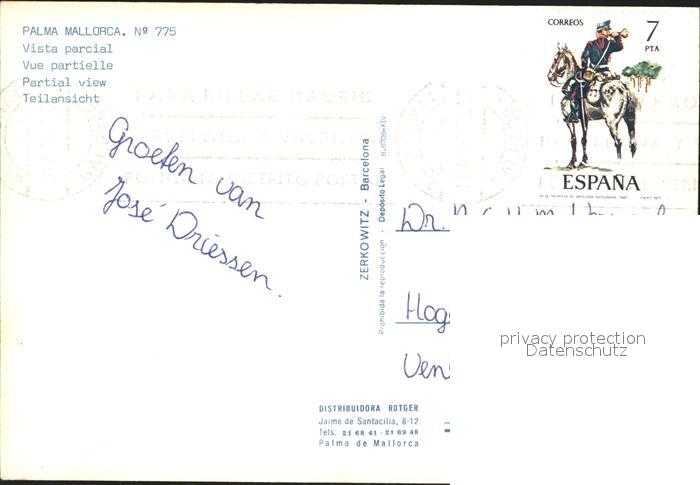 PALMA MALLORCA. Nº 775
Vista parcial
Vue partielle
Partial view
Teilansicht
Groeten van
José Driessen.
ZERKOWITZ - Barcelona
Prohibida la reproducción - Depósito Legal B.
CORREOS
7
PTA
ESPAÑA
PARA BILBAO MADRID
BARCELONA Y
DISTRITO POSTAL
Dr.
Hog
Ven
privacy protection
Datenschutz
DISTRIBUIDORA ROTGER
Jaime de Santacilia, 8-12
Tels. 21 68 41 - 21 69 48
Palma de Mallorca